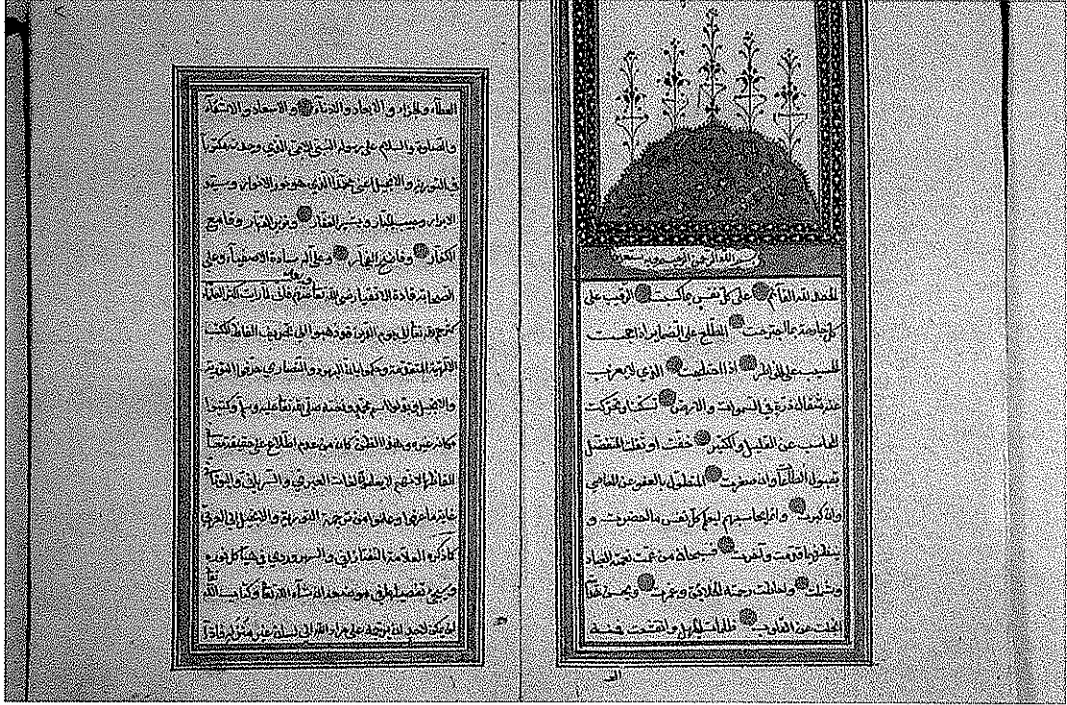 بسم الله الرحمن الرحيم وبه نستعين
الحمد لله القائم على كل نفس بما كسبت الرقيب على
كل جارحة بما اجترحت المطلع على الضماير اذا هجست
الحسيب على الخواطر اذا اختلجت الذي لا يعزب
عنه مثقال ذرة في السموات والارض تحركت
المحاسب عن القليل والكثير خفت او ثقلت المتفضل
بقبول الطاعات وان صغرت المتطول بالعفو عن المعاصي
وان كبرت وانما يحاسبهم ليعلم كل نفس ما احضرت و
ينظر فيما قدمت واخرت فسبحان من عمت نعمته العباد
وشملت واحاطت رحمته الخلائق وغمرت وبحسن
انجلت عن القلوب ظلمات الجهل وانقشعت فمنه
العطاء والجزاء و الابعاد والادناء والاسعاد والاشقاء
والصلوة والسلام على رسوله النبي الامي الذي وجدته مكتوبا
في التورية والانجيل اعني محمدا الذي هو نور الانوار وسيد
الابرار وحبيب الجبار وبشير الغفار ونذير القهار وقامع
الكفار وفاضح الفجار وعلى آله سادة الاصفياء وعلى
الصحابة قادة الاتقياء رضي الله تعا عنهم فاني لما رأيت اكثر العلماء
كثرهم الله تعا الى يوم الدين قد ذهبوا الى تحريف الفاظ الكتب
الالهية المتقدمة وحكموا بان اليهود والنصارى حرفوا التورية
والانجيل وبدلوا اسم محمد صلى الله تعا عليه وسلم وكتبوا
مكانه غيره وهذا الظن كان من عدم اطلاع على حقيقة
الفاظها لانهم لم يعلموا لغات العبري والسرياني واليوناني
غاية ما عرفوا وعلموا من ترجمة التورية والانجيل الى العربي
كما ذكره العلامة التفتازاني والسهروردي في هياكل نوره
وسيجئ تفصيلها في موضعه ان شاء الله تعا وكتاب الله